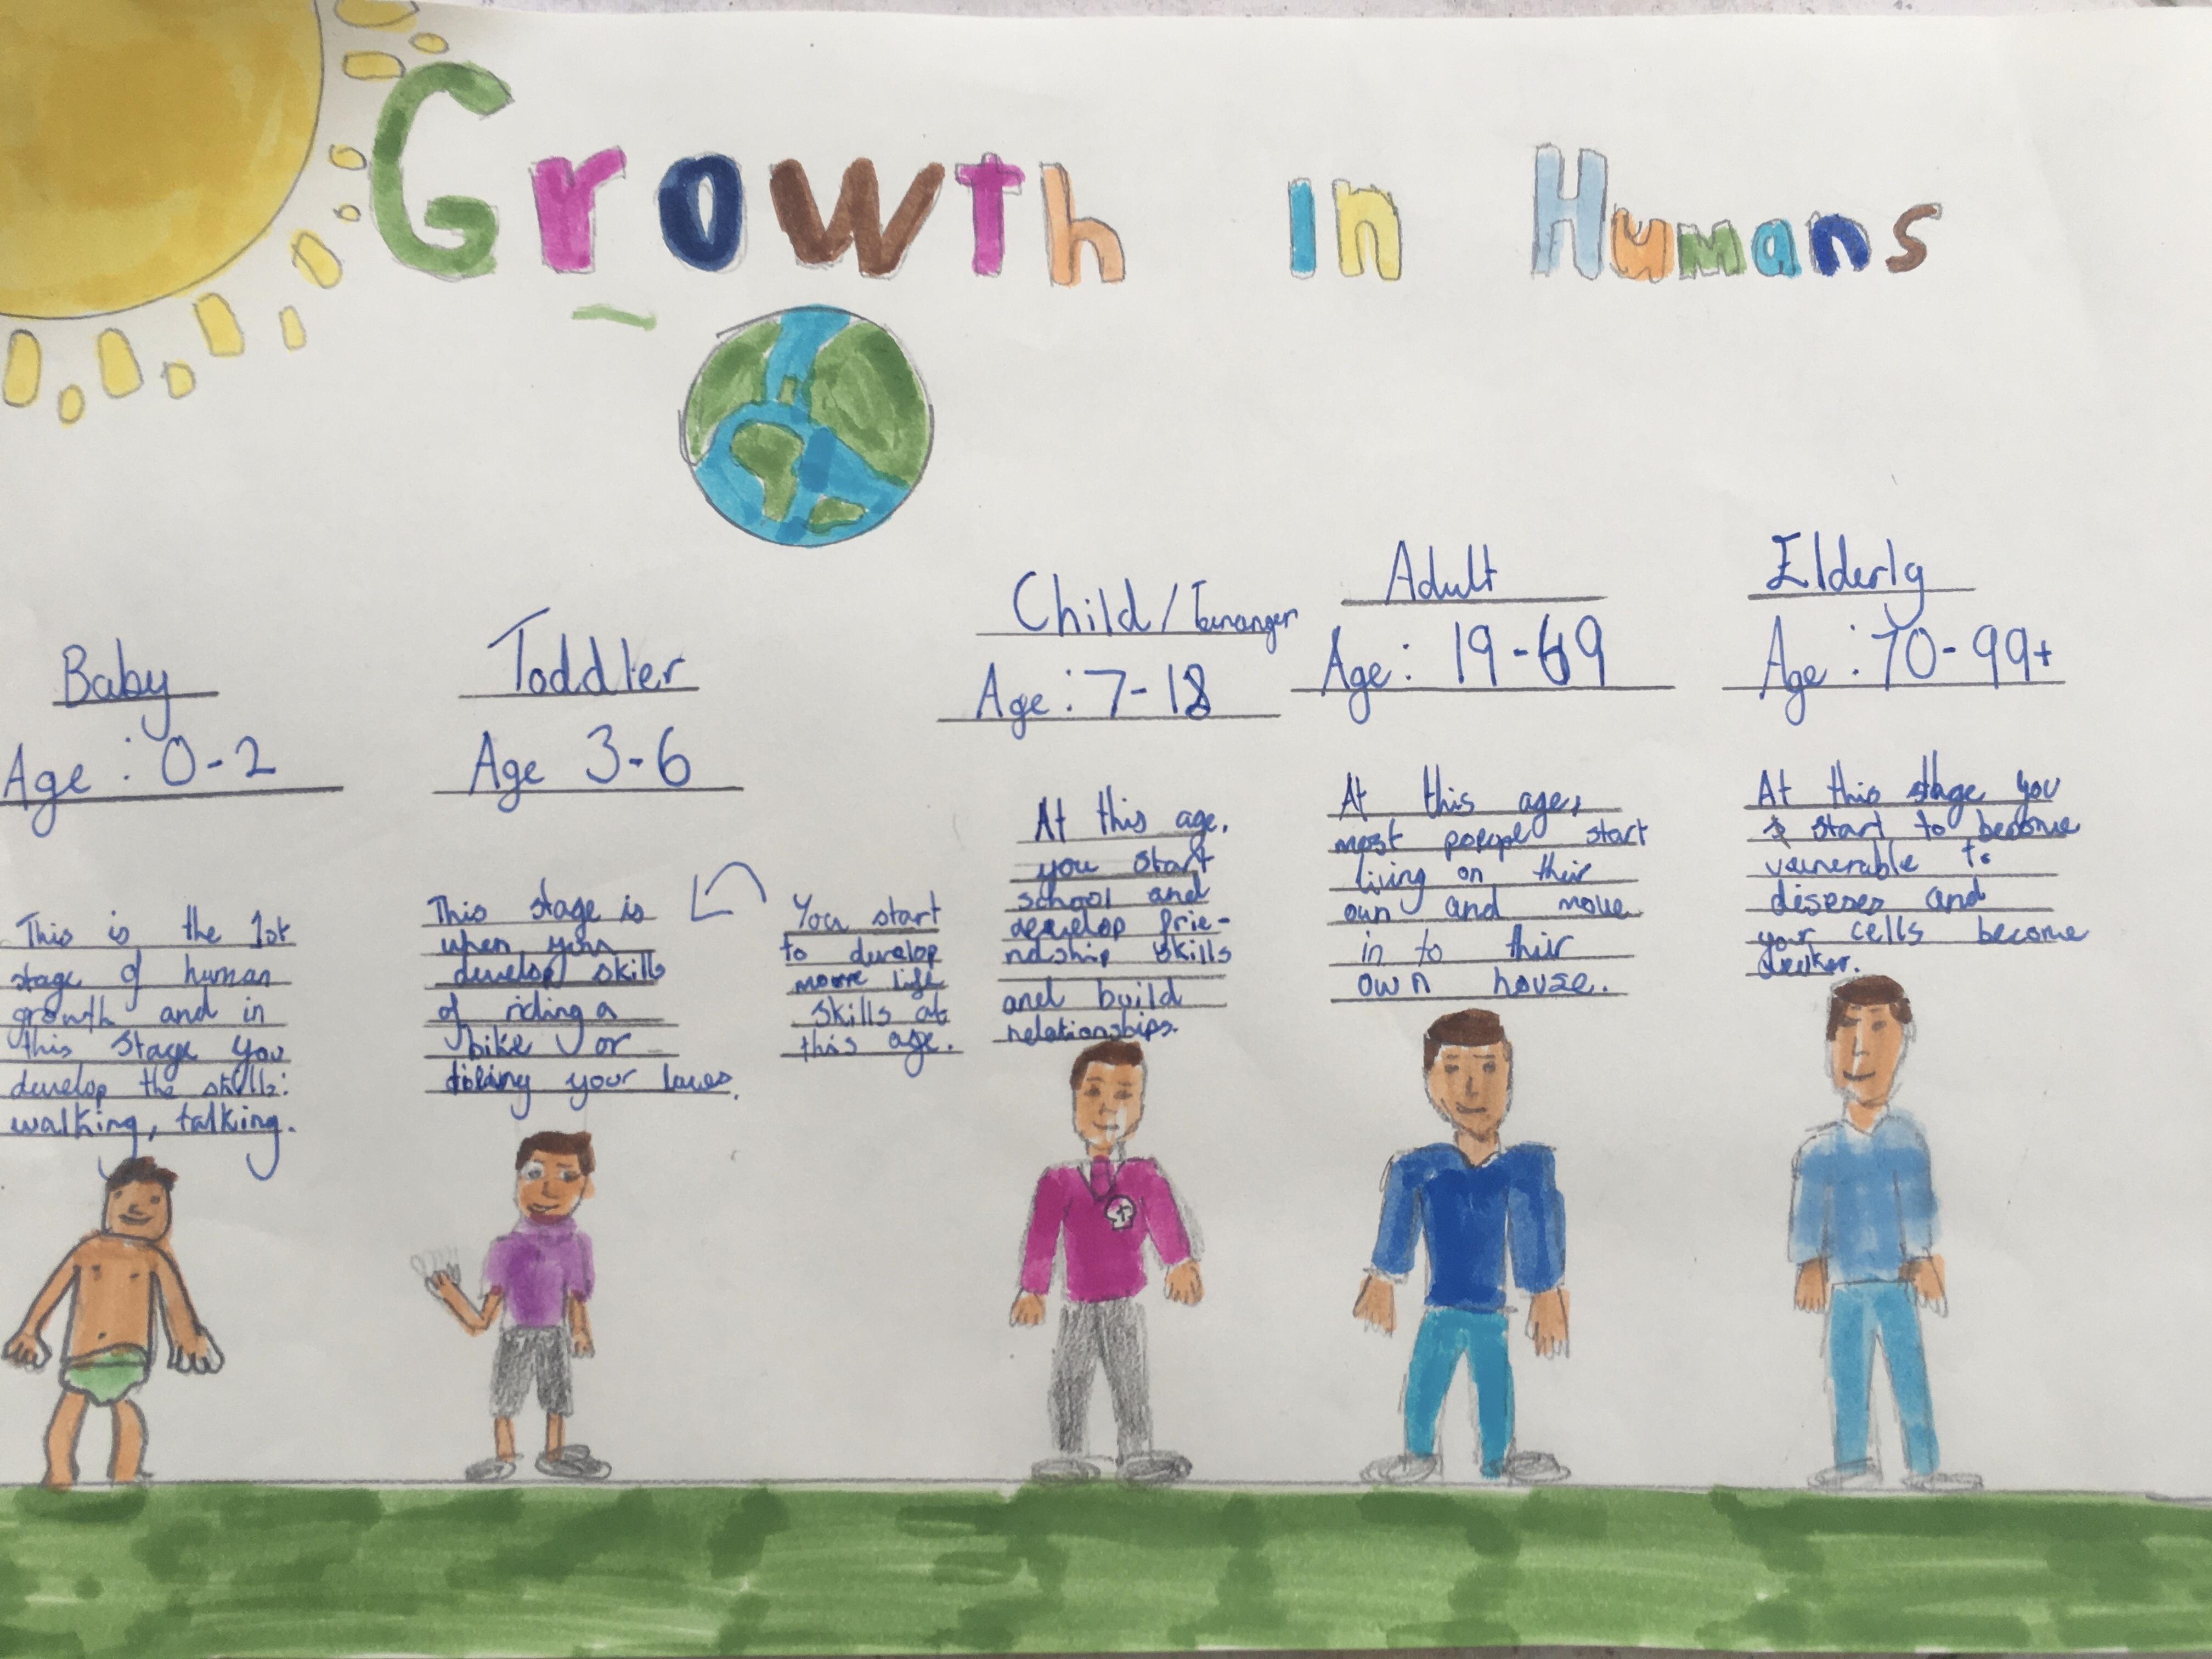 Growth in Humans
Baby
Age: 0-2
This is the 1st
stage of human
growth and in
this stage you
develop the skills:
walking, talking.
Toddler
Age 3-6
This stage is
when you
develop skills
of riding a
bike or
your laces.
You start
to develop
more life
skills at
this age.
Child/Teenanger
Age: 7-18
At this age,
you start
school and
develop frie-
ndship skills
and build
relationships.
Adult
Age: 19-69
At this age,
most peop start
living on their
own and move
in to their
own house.
Elderly
Age: 70-99+
At this stage you
start to become
vunerable to
diseses and
your cells become